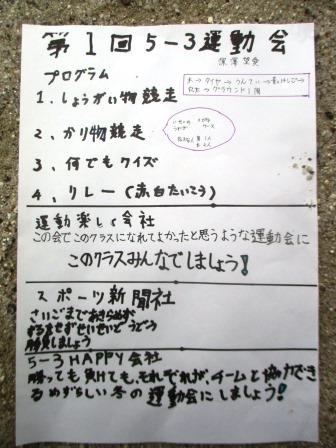 第1回5-3運動会
プログラム
1、しょうがい物競走
2、かり物競走
3、何でもクイズ
4、リレー(赤白たいこう)
運動楽しく会社
この会でこのクラスになれてよかったと思うような運動会に
このクラスみんなでしましょう!
スポーツ新聞社
さいごまであきらめず
ずるをせずせいせいどうどう
勝負しましょう
5-3HAPPY会社
勝っても負けても、それぞれが、チームと協力でき
るめずらしい冬の運動会にしましょう!